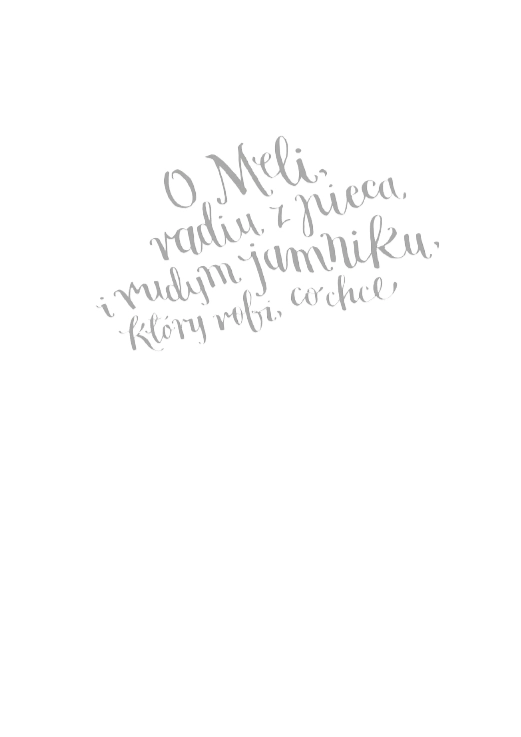 O Meli,
radiu z pieca
i rudym jamniku,
który robi, co chce